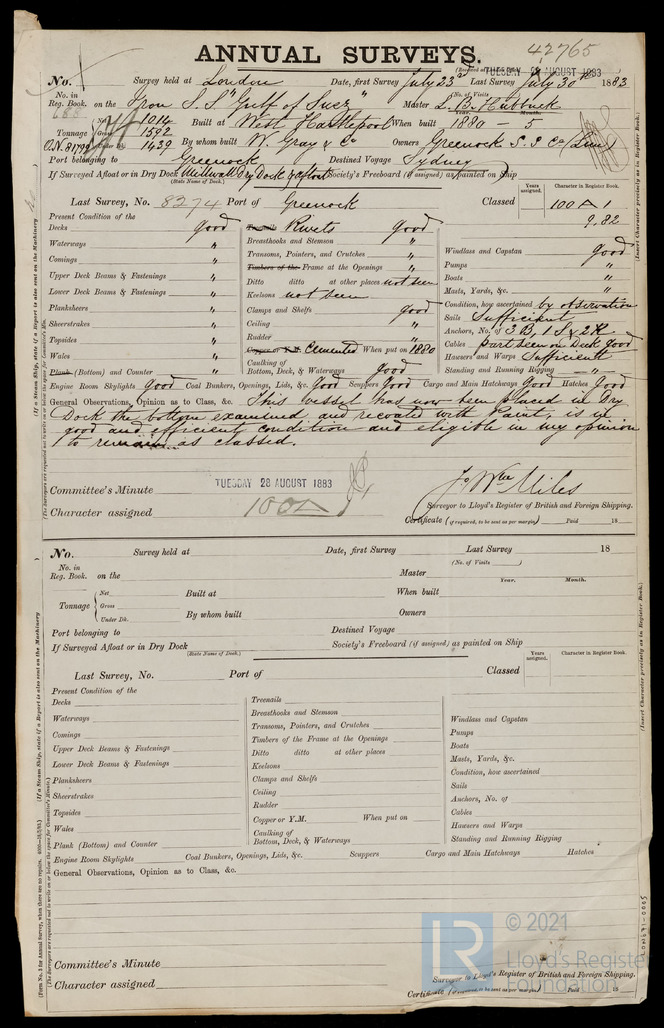 ANNUAL SURVEYS.
42765
TUESDAY 28 AUGUST 1883
No. Survey held at London Date, first Survey July 23rd Last Survey July 30th 1883
No. in Reg. Book. on the Iron S.S "Gulf of Suez" (No. of Visits) Master L. B. Hubbuck
Year. Months.
Tonnage Net 1014 Gross 1592 Under Dk. 1439 Built at West Hartlepool When built 1880 5
O.N. 81799 By whom built W. Gray & Co Owners Greenock S.S Co (Lim)
Port belonging to Greenock Destined Voyage Sydney
If Surveyed Afloat or in Dry Dock Millwall Dry Dock & afloat Society's Freeboard (if assigned) as painted on Ship
(State Name of Dock.)
Years assigned. Character in Register Book.
Last Survey, No. 8274 Port of Greenock Classed 100 A 1
9.82
Present Condition of the
Decks good
Waterways "
Comings "
Upper Deck Beams & Fastenings "
Lower Deck Beams & Fastenings "
Planksheers "
Sheerstrakes "
Topsides "
Wales "
Plank (Bottom) and Counter "
Treenails Rivets good
Breasthooks and Stemson "
Transoms, Pointers, and Crutches "
Timbers of the Frame at the Openings "
Ditto ditto at other places not seen
Keelsons not seen
Clamps and Shelfs good
Ceiling "
Rudder "
Copper or Y.M. Cemented When put on 1880
Caulking of
Bottom, Deck, & Waterways good
Windlass and Capstan good
Pumps "
Boats "
Masts, Yards, &c. "
Condition, how ascertained by observation
Sails Sufficient
Anchors, No. of 3 B, 1 S, 2 K.
Cables part seen on Deck good
Hawsers and Warps Sufficient
Standing and Running Rigging "
Engine Room Skylights good Coal Bunkers, Openings, Lids, &c. good Scuppers good Cargo and Main Hatchways good Hatches good
General Observations, Opinion as to Class, &c. This vessel has now been placed in Dry
Dock the bottom examined and recoated with Paint, is in
good and efficient condition and eligible in my opinion
to remain as classed.
Committee's Minute TUESDAY 28 AUGUST 1883
Character assigned 100A
Jo Wm Miles
Surveyor to Lloyd's Register of British and Foreign Shipping.
Certificate (if required, to be sent as per margin) Paid 18
No. Survey held at Date, first Survey Last Survey 18
No. in Reg. Book. on the (No. of Visits ) Master
Year. Month.
Tonnage Net Gross Under Dk. Built at When built
By whom built Owners
Port belonging to Destined Voyage
If Surveyed Afloat or in Dry Dock Society's Freeboard (if assigned) as painted on Ship
(State Name of Dock.)
Years assigned. Character in Register Book.
Last Survey, No. Port of Classed
Present Condition of the
Decks
Waterways
Comings
Upper Deck Beams & Fastenings
Lower Deck Beams & Fastenings
Planksheers
Sheerstrakes
Topsides
Wales
Plank (Bottom) and Counter
Treenails
Breasthooks and Stemson
Transoms, Pointers, and Crutches
Timbers of the Frame at the Openings
Ditto ditto at other places
Keelsons
Clamps and Shelfs
Ceiling
Rudder
Copper or Y.M. When put on
Caulking of
Bottom, Deck, & Waterways
Windlass and Capstan
Pumps
Boats
Masts, Yards, &c.
Condition, how ascertained
Sails
Anchors, No. of
Cables
Hawsers and Warps
Standing and Running Rigging
Engine Room Skylights Coal Bunkers, Openings, Lids, &c. Scuppers Cargo and Main Hatchways Hatches
General Observations, Opinion as to Class, &c.
Committee's Minute
Character assigned
Surveyor to Lloyd's Register of British and Foreign Shipping.
Certificate (if required, to be sent as per margin) Paid 18
LR © 2021
Lloyd's Register
Foundation
(If a Steam Ship, state if a Report is also sent on the Machinery
(Insert Character precisely as in Register Book.)